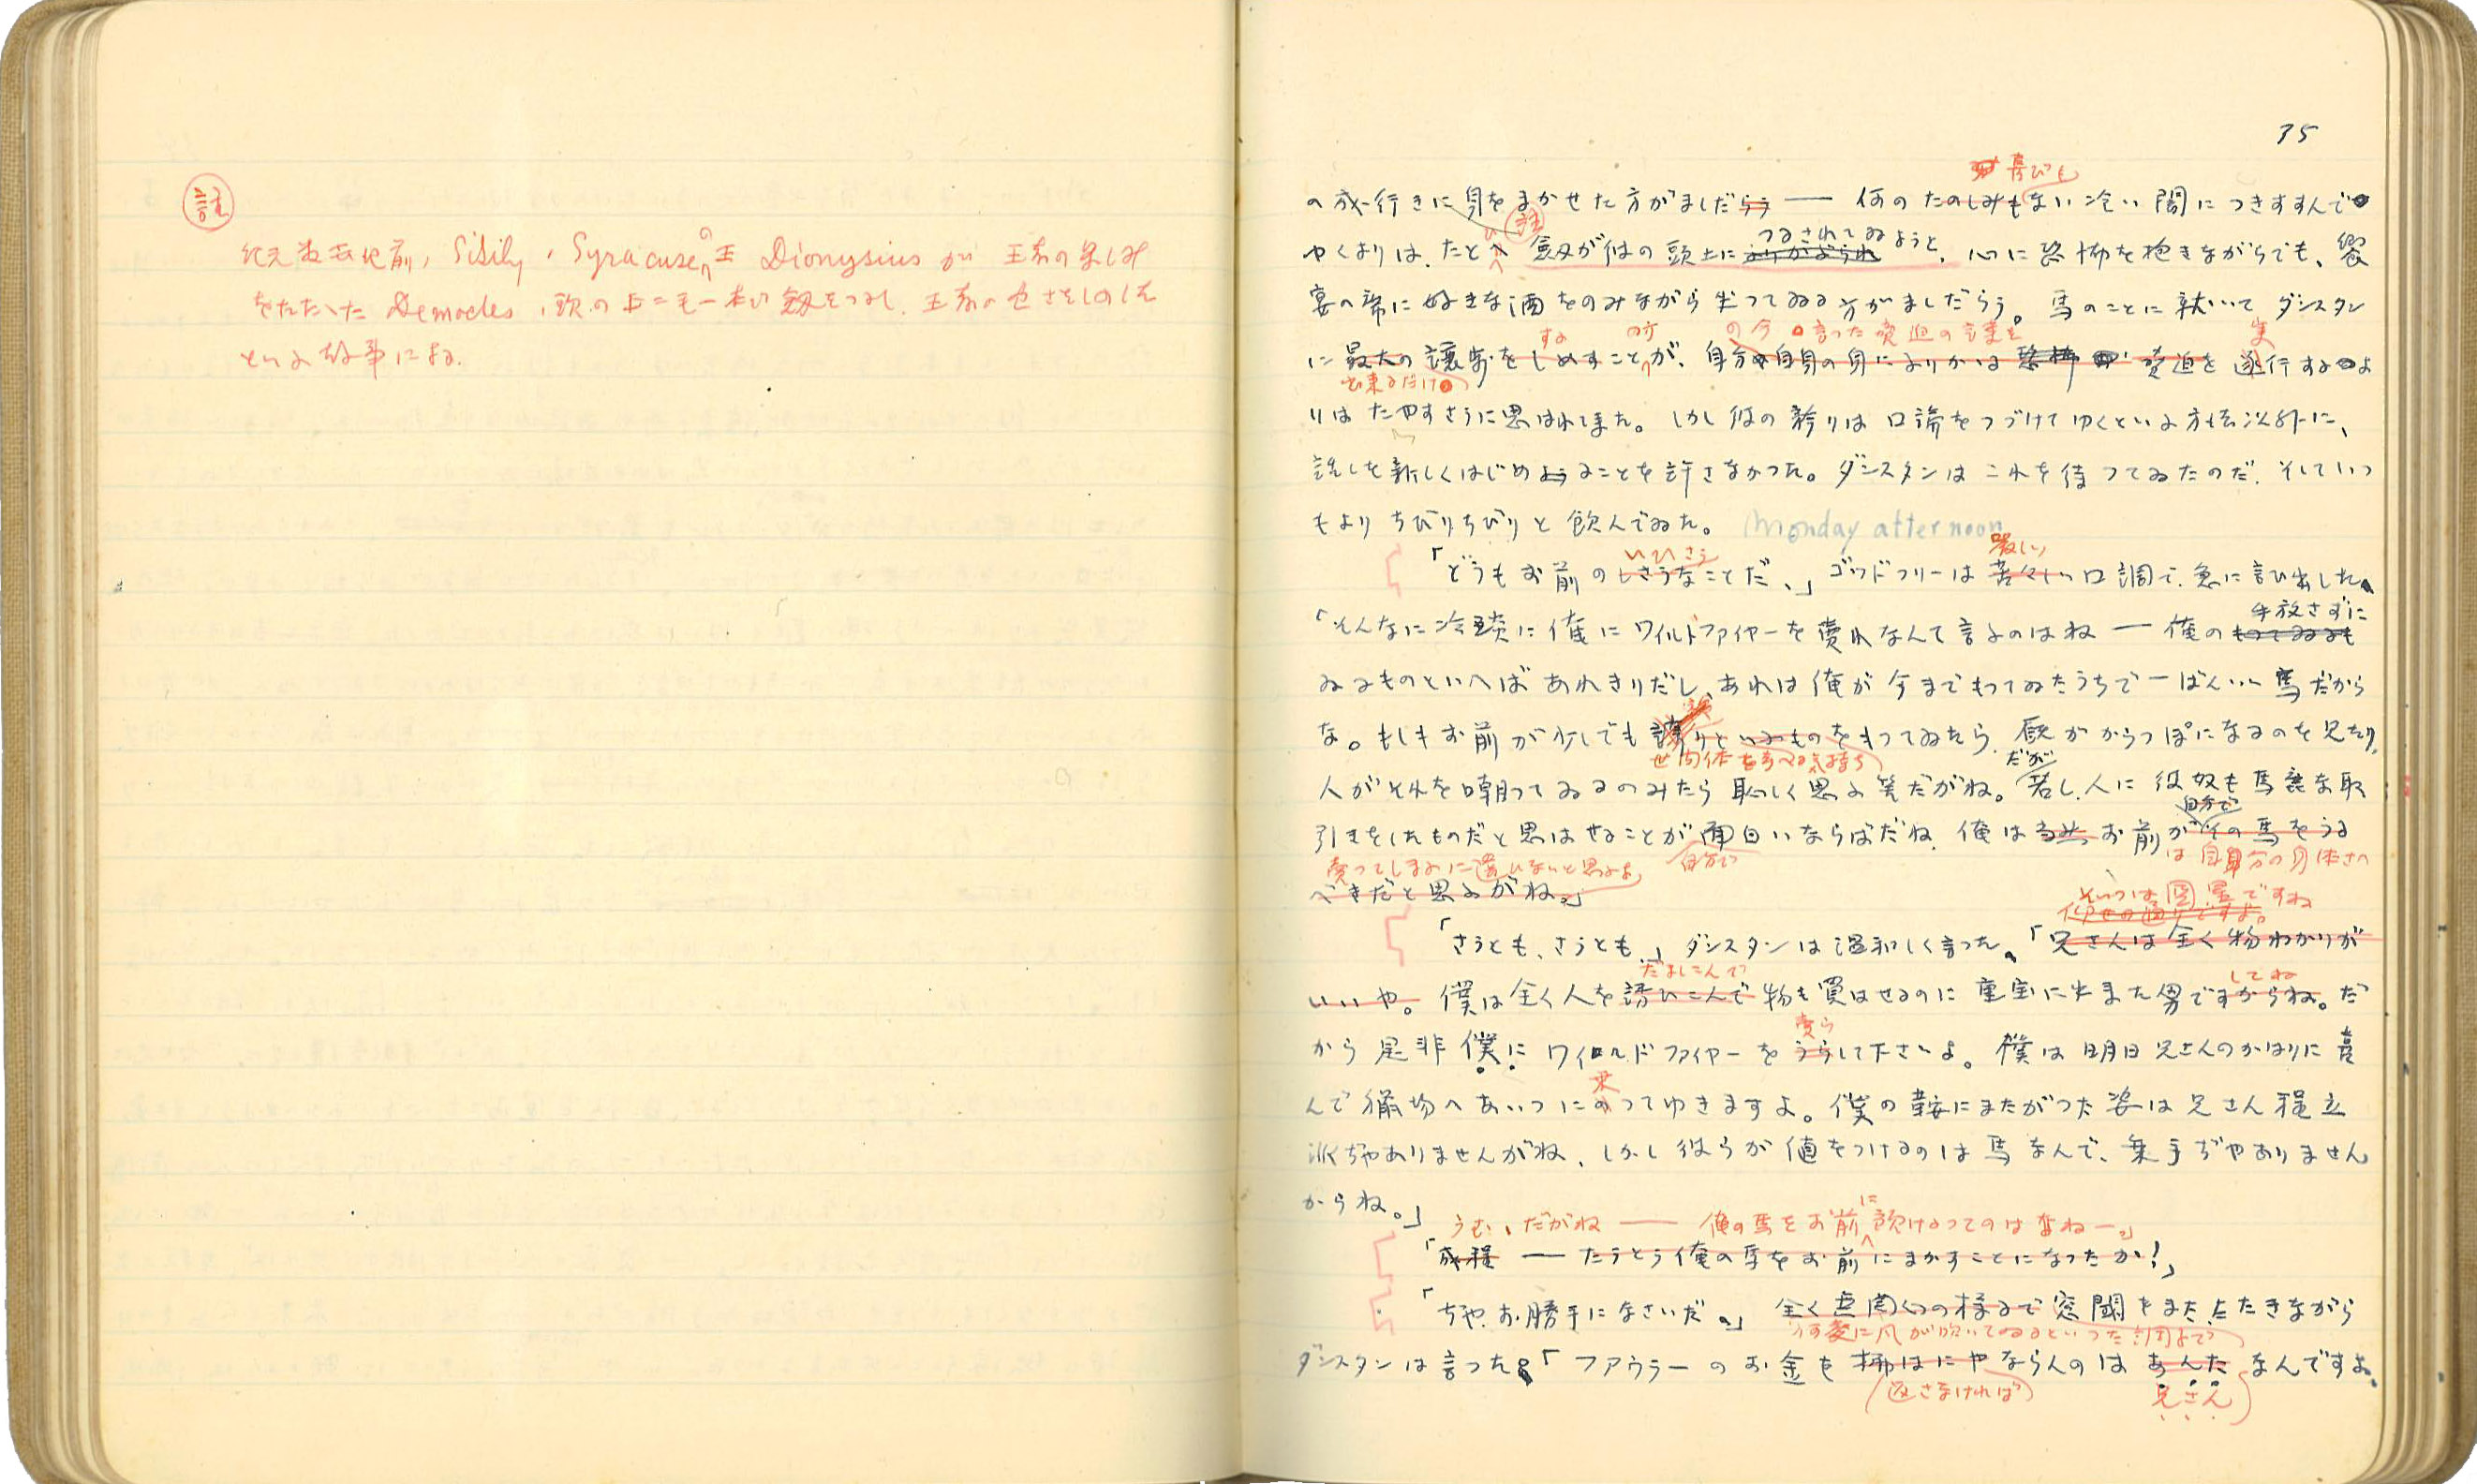 註
紀元前、Sisily、Syracuseの王 Dionysius が 王者の楽しみ
をたたへた Democles、歌の上に毛一本で劔をつるし、王者の危さをしめした
といふ故事による。
35
喜びも
の成行きに身をまかせた方がましだらう ── 何のたのしみもない冷い闇につきすすんで
註
つるされてゐようと、
ゆくよりは、たとへ 劔が彼の頭上に 心に恐怖を抱きながらでも、饗
宴の席に好きな酒をのみながら坐つてゐる方がましだらう。馬のことに就いて ダンスタン
する の方 の今言つた脅迫の言葉を 実
に最大の譲歩をしめすことが、自分自身の身にふりかかは 恐怖 脅迫を遂行するよ
出来るだけの
りは たやすさうに思はれてきた。しかし彼の誇りは口論をつづけてゆくといふ方法以外に、
話しを新しくはじめることを許さなかつた。ダンスタンはこれを待つてゐたのだ、そしていつ
もより ちびりちびりと飲んでゐた。 Monday afternoon
いひさう 厳しい
「どうもお前のしさうなことだ、」ゴッドフリーは苦々しい口調で、急に言ひ出した、
手放さずに
「そんなに冷淡に俺にワイルドファイヤーを売れなんて言ふのはね ─ 俺のもつてゐるも
ゐるものといへばあれきりだし、あれは俺が今までもつてゐたうちで一ばんいい馬だから
な。もしもお前が少しでも誇りといふものをもつてゐたら、厩がからつぽになるのを見たり、
世間体を考へる気持ち だが
人がそれを嘲つてゐるのみたら恥しく思ふ筈だがね。若し、人に彼奴も馬鹿な取
自分で
引きをしたものだと思はせることが面白いならばだね、俺は当然お前がその馬をうる
売つてしまふに違ひないと思ふよ 自分で は自分の身体さへ
べきだと思ふがね。」
そいつは図星ですね
仰せの通りですよ。
「さうとも、さうとも、」ダンスタンは温和しく言つた、「兄さんは全く物わかりが
だましこんで してね
いいや。僕は全く人を誘ひこんで物を買はせるのに重宝に出来た男ですからね。だ
売ら
から是非僕にワイルドファイヤーをうらして下さいよ。僕は明日兄さんのかはりに喜
乗
んで猟場へあいつにのつてゆきますよ。僕の鞍にまたがつた姿は兄さん程立
派ぢやありませんがね、しかし彼らが値をつけるのは馬なんで、乗手ぢやありません
からね。」
うむ、だがね ── 俺の馬をお前に預けるつてのはなね─」
「成程 ── たうとう俺の馬をお前にまかすことになつたか!」
「ぢや、お勝手になさいだ。」全く無関心の様子で窓閾をまたたきながら
うす変に風が吹いてゐるといつた調子で
ダンスタンは言つた。「ファウラーのお金を拂はにやならんのはあんたなんですよ、
(返さなければ) 兄さん